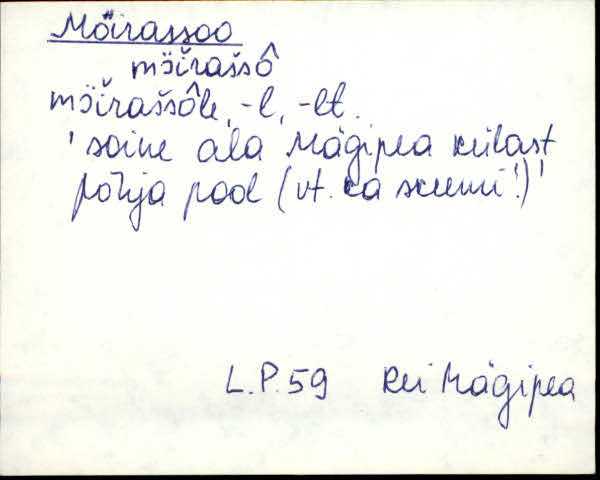 Möirassoo
möirassô
möirassôle, -l, -lt.
'soine ala Mägipea külast
põhja pool (vt. ka skeemi!)'
L.P. 59 Rei Mägipea